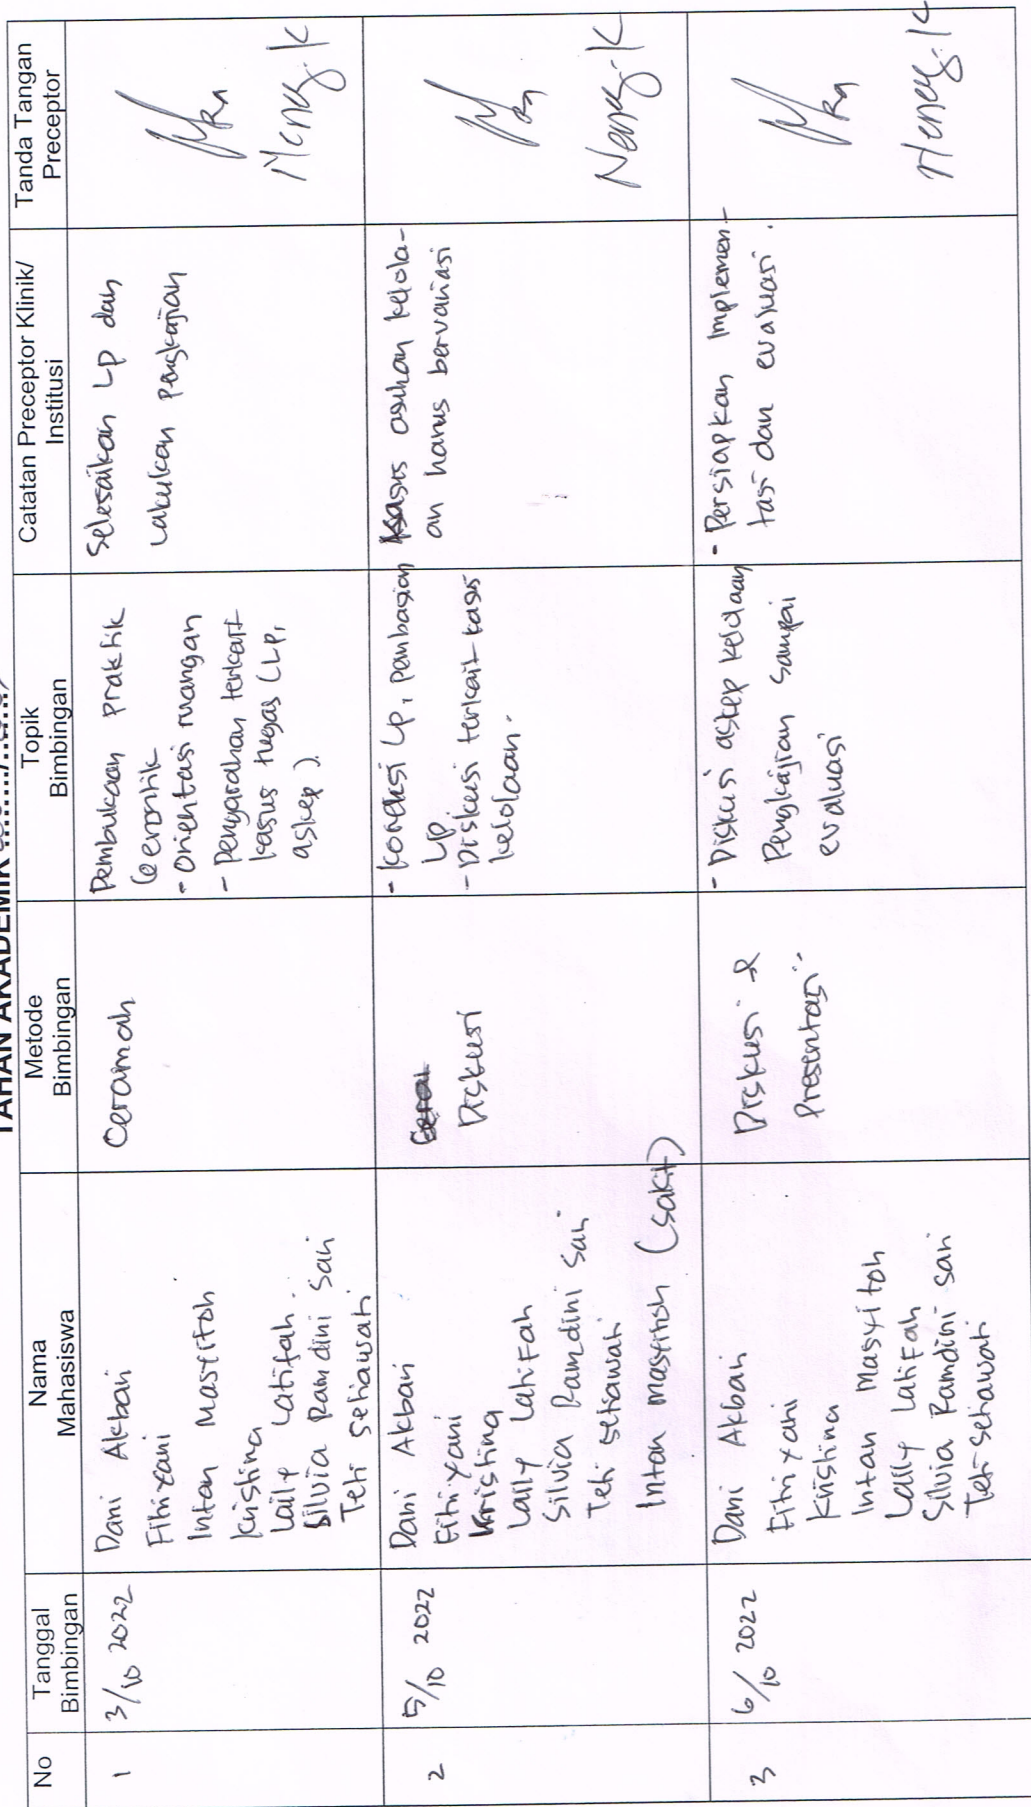 TAHAN AKADEMIK
No
Tanggal
Bimbingan
Nama
Mahasiswa
Metode
Bimbingan
Topik
Bimbingan
Catatan Preceptor Klinik/
Institusi
Tanda Tangan
Preceptor
1
3/10 2022
Dani Akbari
Fitriyani
Intan Masyitoh
Kristina
Laily Latifah.
Silvia Ramdini Sari
Teti Setiawati
Ceramah
Pembukaan praktik
Gerontik
- Orientasi ruangan
- Pengarahan terkait
kasus tugas (LP,
askep)
Selesaikan LP dan
lakukan pengkajian
2
5/10 2022
Dani Akbari
Fitriyani
Kristina
Laily Latifah
Silvia Ramdini Sari
Teti setiawati
Intan masyitoh (sakit)
Diskusi
- Koreksi LP, pembagian
LP.
- Diskusi terkait kasus
kelolaan.
Kasus asuhan kelola-
an harus bervariasi
3
6/10 2022
Dani Akbari
Fitriyani
Kristina
Intan Masyitoh
Laily Latifah
Silvia Ramdini sari
Teti setiawati
Diskusi &
Presentasi
- Diskusi askep kelolaan
Pengkajian sampai
evaluasi
- Persiapkan Implemen-
tasi dan evaluasi.